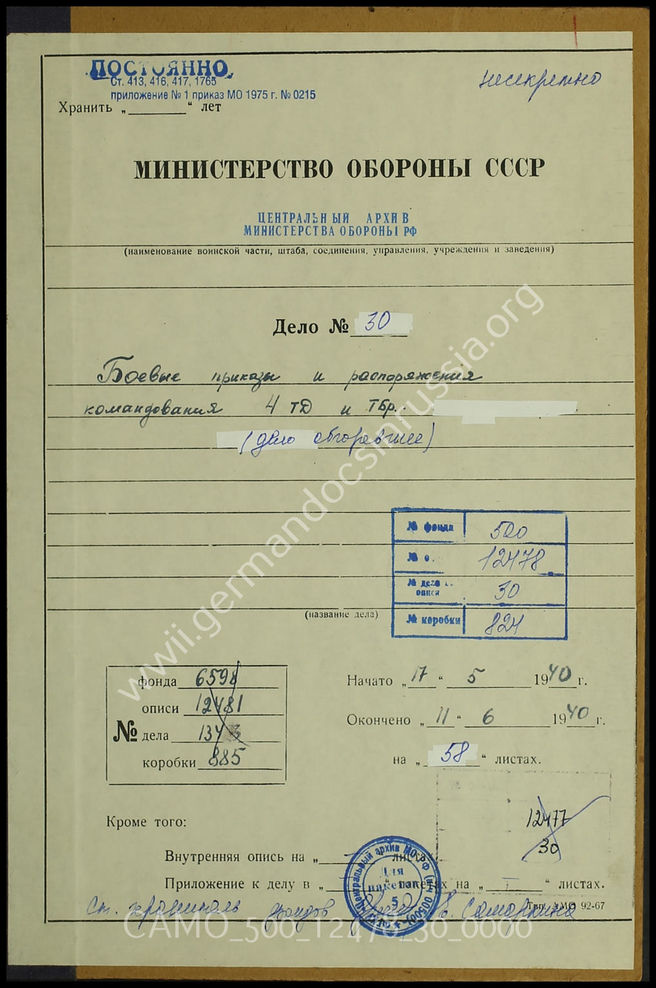 ПОСТОЯННО
Ст. 413, 416, 417, 1765
приложение № 1 приказ МО 1975 г. № 0215
несекретно
Хранить „ “ лет
МИНИСТЕРСТВО ОБОРОНЫ СССР
ЦЕНТРАЛЬНЫЙ АРХИВ
МИНИСТЕРСТВА ОБОРОНЫ РФ
(наименование воинской части, штаба, соединения, управления, учреждения и заведения)
Дело № 30
Боевые приказы и распоряжения
командования 4 ТД и ТБр.
(дело обгоревшее)
№ фонда 500
№ о 12478
№ дела
описи 30
№ коробки 824
(название дела)
фонда 6598
описи 12481
№ дела 134
коробки 885
Начато „17“ 5 1940 г.
Окончено „11“ 6 1940 г.
на „58“ листах.
12477
30
Кроме того:
Внутренняя опись на „ “ листах
Приложение к делу в „ “ пакетах на „ “ листах.
Центральный архив МО РФ
Для
пакетов
5
Ст. хранитель фондов
92-67
www.germandocsinrussia.org
CAMO_500_12478_30_0000